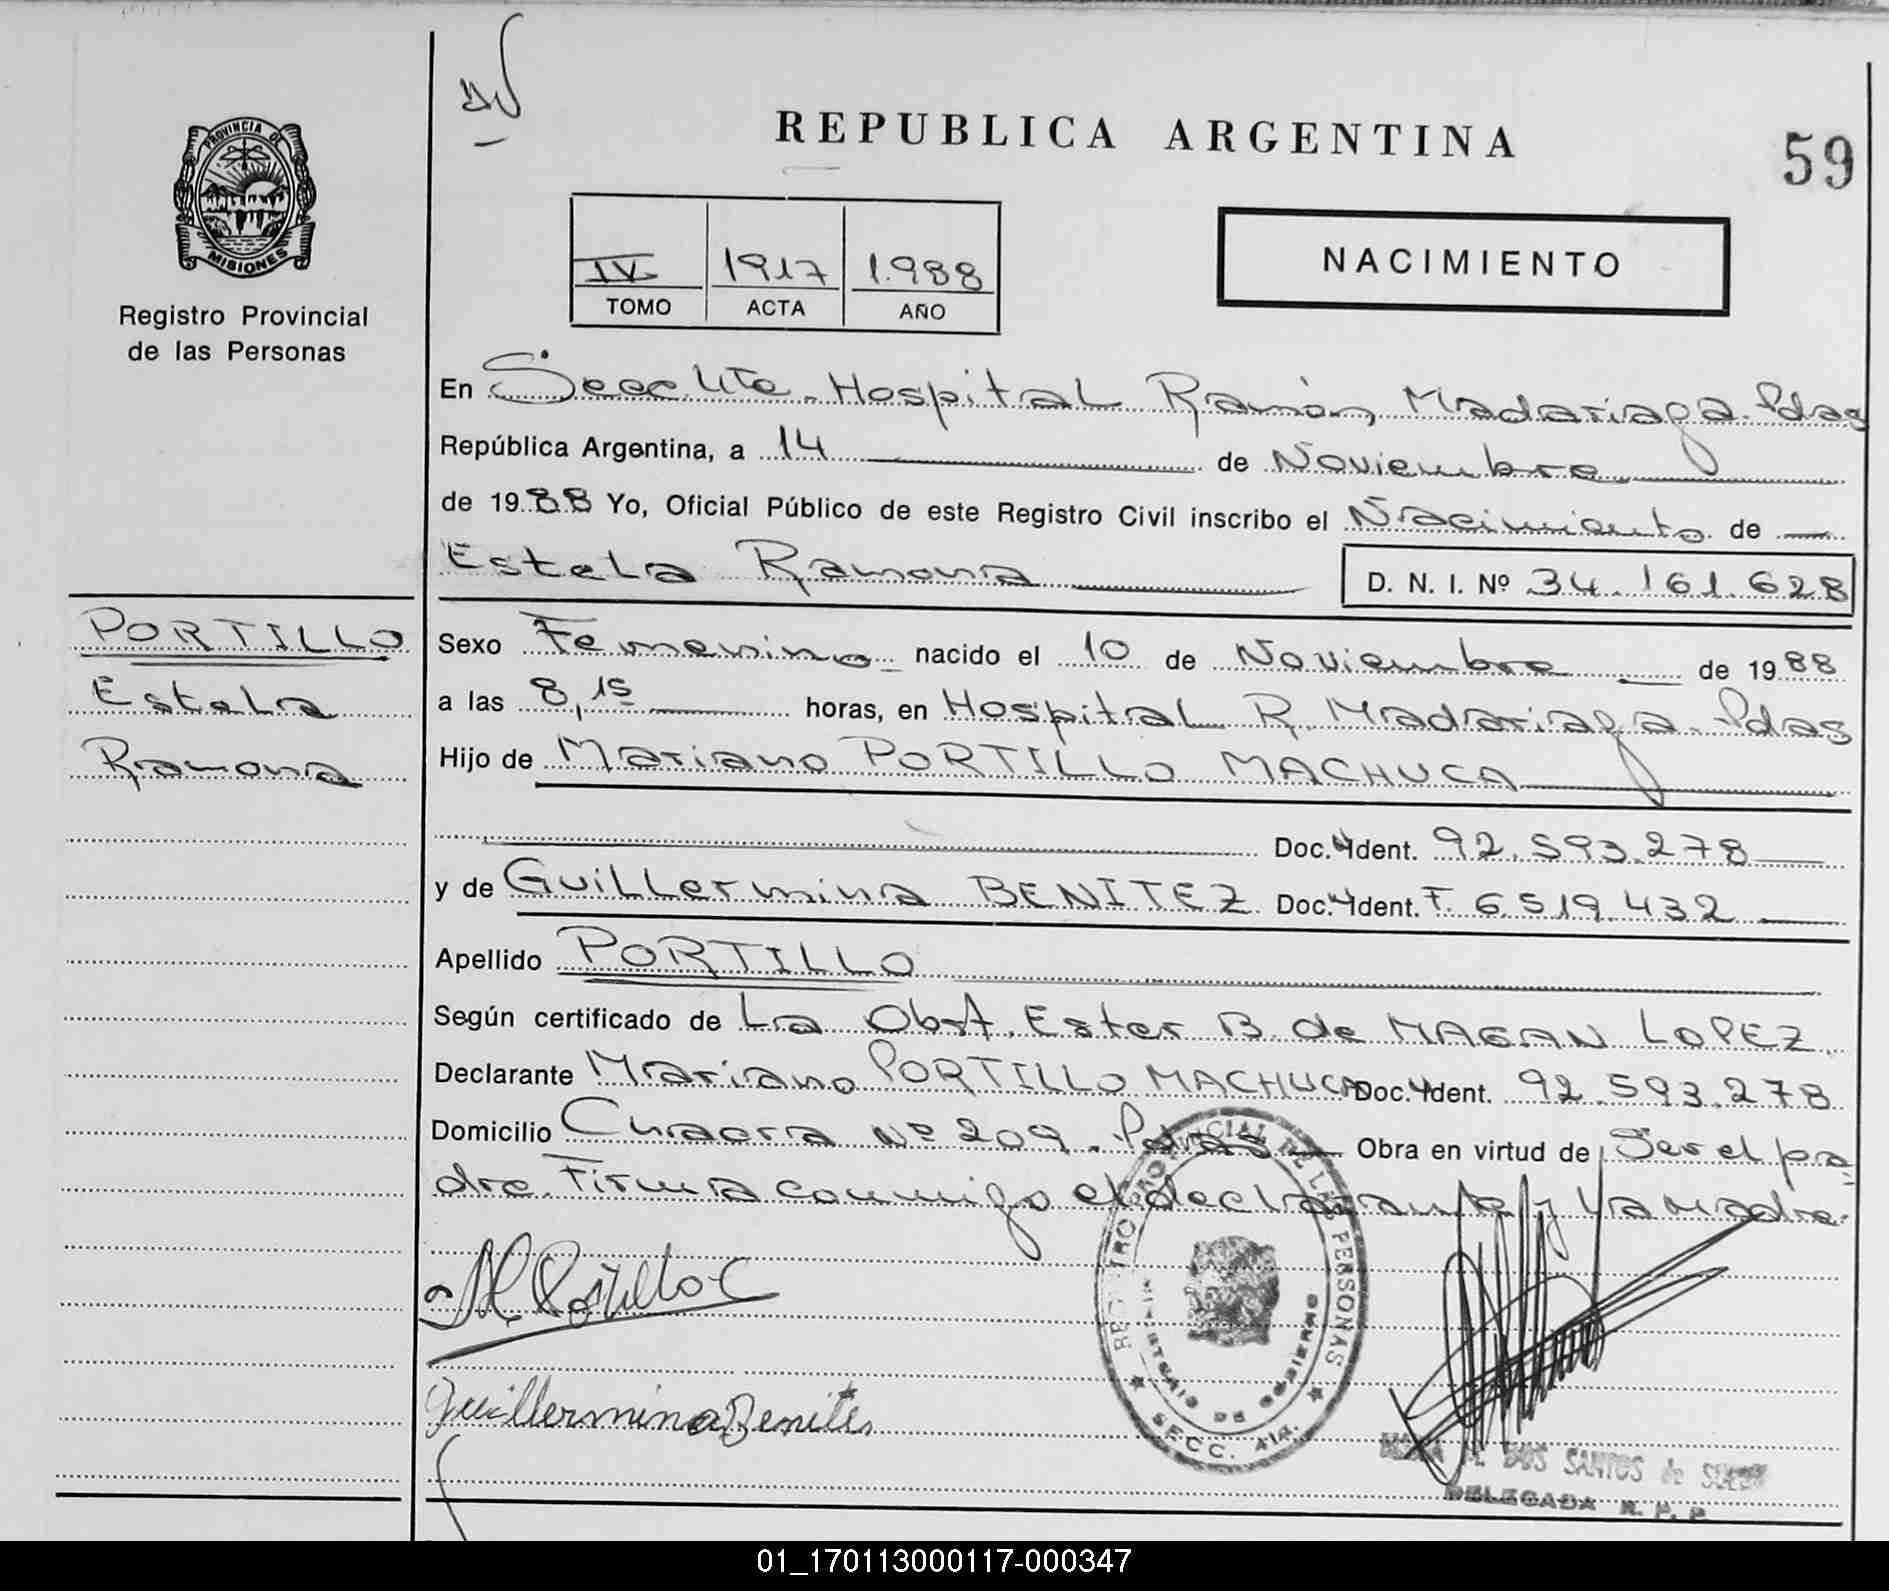 PROVINCIA DE
MISIONES
Registro Provincial
de las Personas
REPUBLICA ARGENTINA
59
IV 1917 1.988
TOMO ACTA AÑO
NACIMIENTO
En Secc 4ta. Hospital Ramón Madariaga. Pdas
República Argentina, a 14 de Noviembre
de 1988 Yo, Oficial Público de este Registro Civil inscribo el Nacimiento de
Estela Ramona D. N. I. Nº 34.161.628
PORTILLO
Estela
Ramona
Sexo Femenino nacido el 10 de Noviembre de 1988
a las 8,15 horas, en Hospital R. Madariaga. Pdas
Hijo de Mariano PORTILLO MACHUCA
Doc. Ident. 92.593.278
y de Guillermina BENITEZ Doc. Ident. F. 6.519.432
Apellido PORTILLO
Según certificado de La Obst. Ester B. de MAGAN LOPEZ
Declarante Mariano PORTILLO MACHUCA Doc. Ident. 92.593.278
Domicilio Chacra Nº 209. Pdas Obra en virtud de Ser el pa
dre. Firma conmigo el declarante y la madre.
REGISTRO PROVINCIAL DE LAS PERSONAS
MINISTERIO DE GOBIERNO
SECC. 4ta.
M Portillo C
Guillermina Benites
DOS SANTOS de
DELEGADA R. P. P
01_170113000117-000347